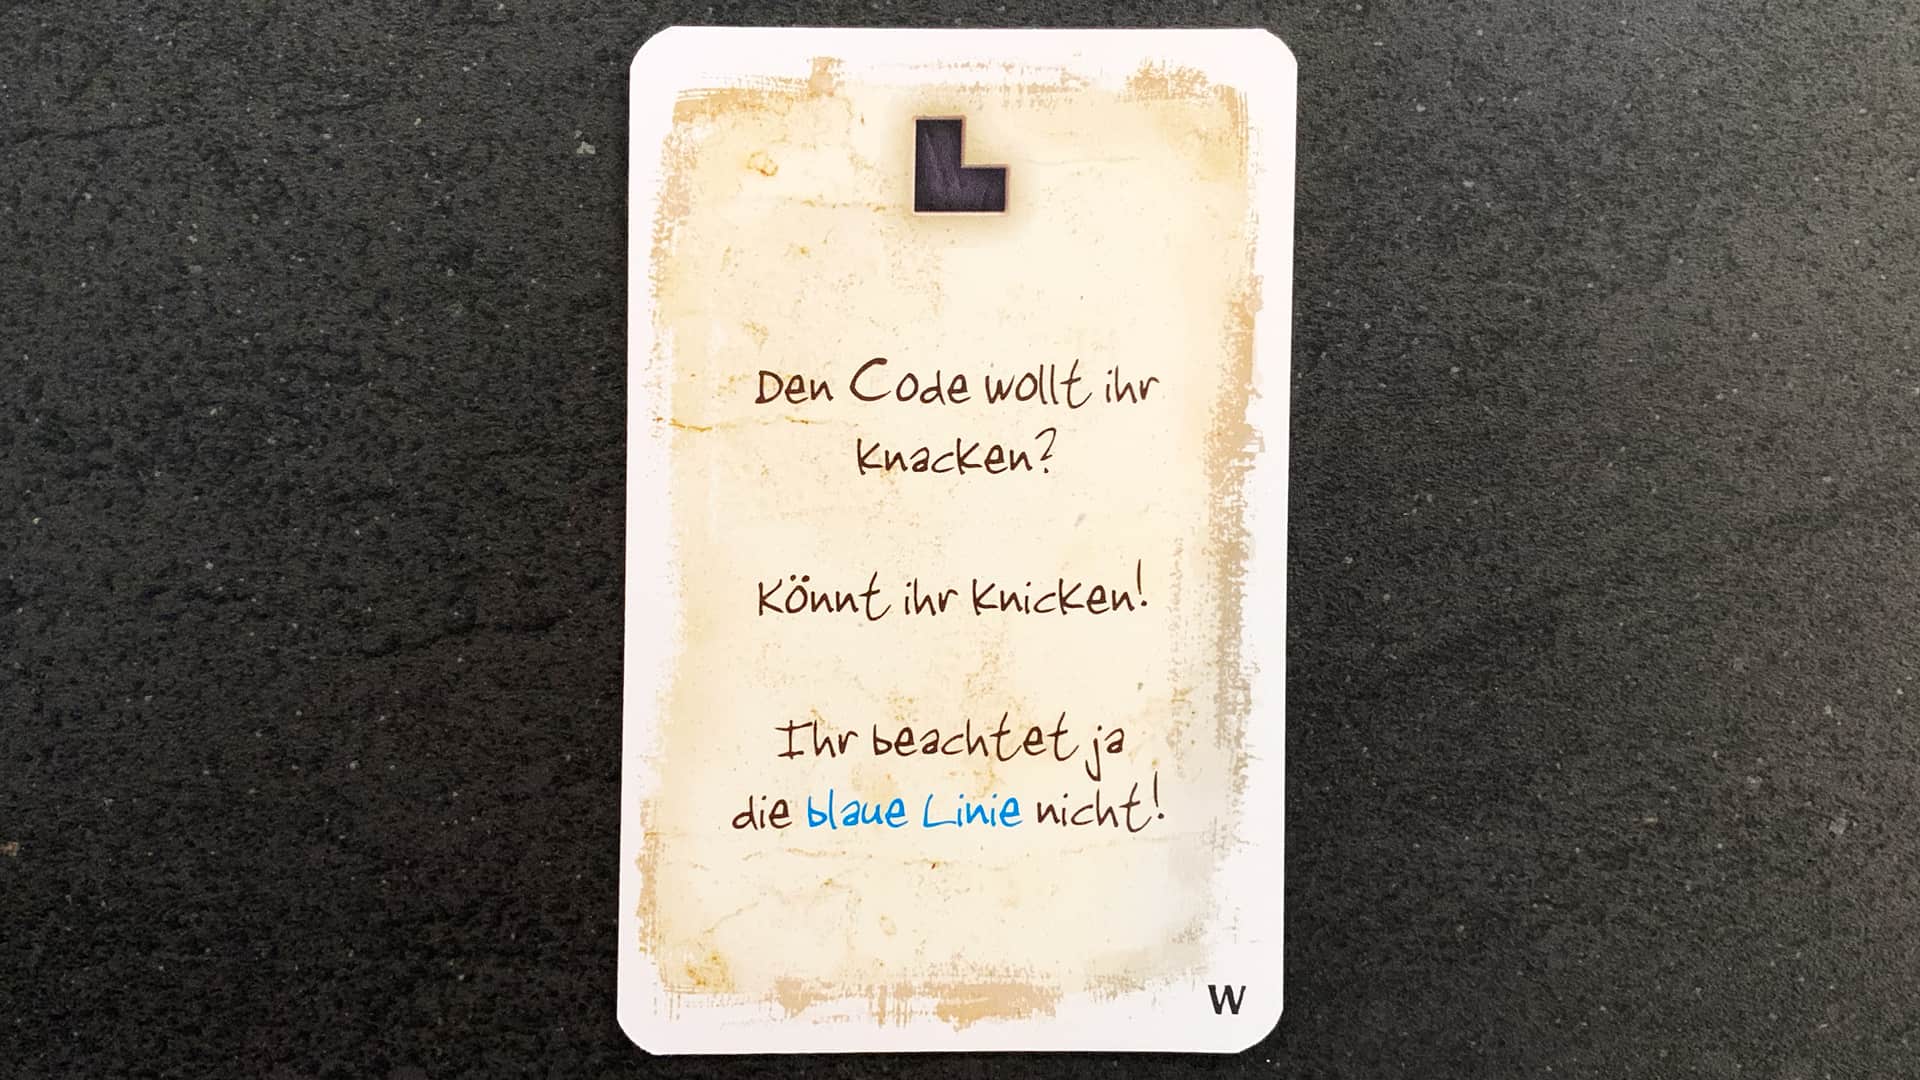 Den Code wollt ihr
knacken?
Könnt ihr knicken!
Ihr beachtet ja
die blaue Linie nicht!
W